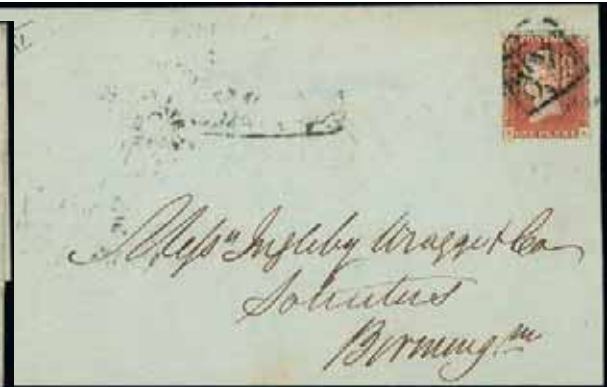 Messrs Ingleby Wragge & Co
Solicitors
Birmingm